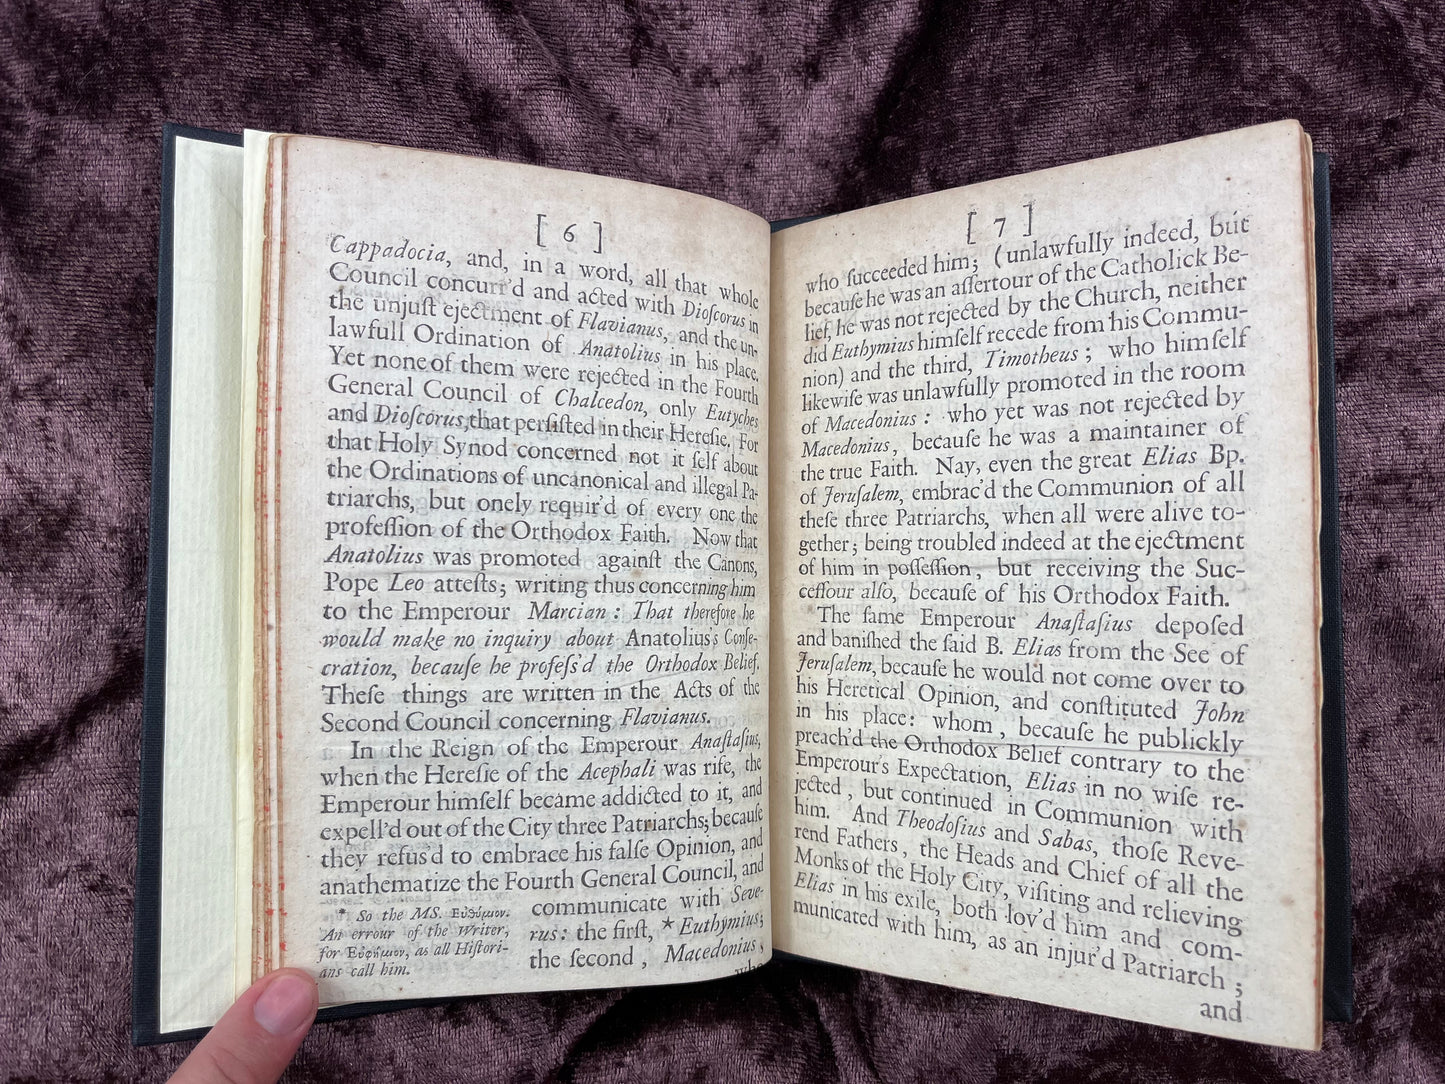 [ 6 ]
Cappadocia, and, in a word, all that whole
Council concurr'd and acted with Dioſcorus in
the unjuſt ejectment of Flavianus, and the un-
lawfull Ordination of Anatolius in his place.
Yet none of them were rejected in the Fourth
General Council of Chalcedon, only Eutyches
and Dioſcorus, that perſiſted in their Hereſie. For
that Holy Synod concerned not it ſelf about
the Ordinations of uncanonical and illegal Pa-
triarchs, but onely requir'd of every one the
profeſſion of the Orthodox Faith. Now that
Anatolius was promoted againſt the Canons,
Pope Leo atteſts; writing thus concerning him
to the Emperour Marcian: That therefore he
would make no inquiry about Anatolius's Conſe-
cration, becauſe he profeſs'd the Orthodox Belief.
Theſe things are written in the Acts of the
Second Council concerning Flavianus.
In the Reign of the Emperour Anaſtaſius,
when the Hereſie of the Acephali was rife, the
Emperour himſelf became addicted to it, and
expell'd out of the City three Patriarchs; becauſe
they refus'd to embrace his falſe Opinion, and
anathematize the Fourth General Council, and
communicate with Seve-
rus: the firſt, * Euthymius;
the ſecond, Macedonius,
who
* So the MS. Εὐθύμιον.
An errour of the Writer,
for Εὐφήμιον, as all Hiſtori-
ans call him.
[ 7 ]
who ſucceeded him; (unlawfully indeed, but
becauſe he was an aſſertour of the Catholick Be-
lief, he was not rejected by the Church, neither
did Euthymius himſelf recede from his Commu-
nion) and the third, Timotheus; who himſelf
likewiſe was unlawfully promoted in the room
of Macedonius: who yet was not rejected by
Macedonius, becauſe he was a maintainer of
the true Faith. Nay, even the great Elias Bp.
of Jeruſalem, embrac'd the Communion of all
theſe three Patriarchs, when all were alive to-
gether; being troubled indeed at the ejectment
of him in poſſeſſion, but receiving the Suc-
ceſſour alſo, becauſe of his Orthodox Faith.
The ſame Emperour Anaſtaſius depoſed
and baniſhed the ſaid B. Elias from the See of
Jeruſalem, becauſe he would not come over to
his Heretical Opinion, and conſtituted John
in his place: whom, becauſe he publickly
preach'd the Orthodox Belief contrary to the
Emperour's Expectation, Elias in no wiſe re-
jected, but continued in Communion with
him. And Theodoſius and Sabas, thoſe Reve-
rend Fathers, the Heads and Chief of all the
Monks of the Holy City, viſiting and relieving
Elias in his exile, both lov'd him and com-
municated with him, as an injur'd Patriarch;
and